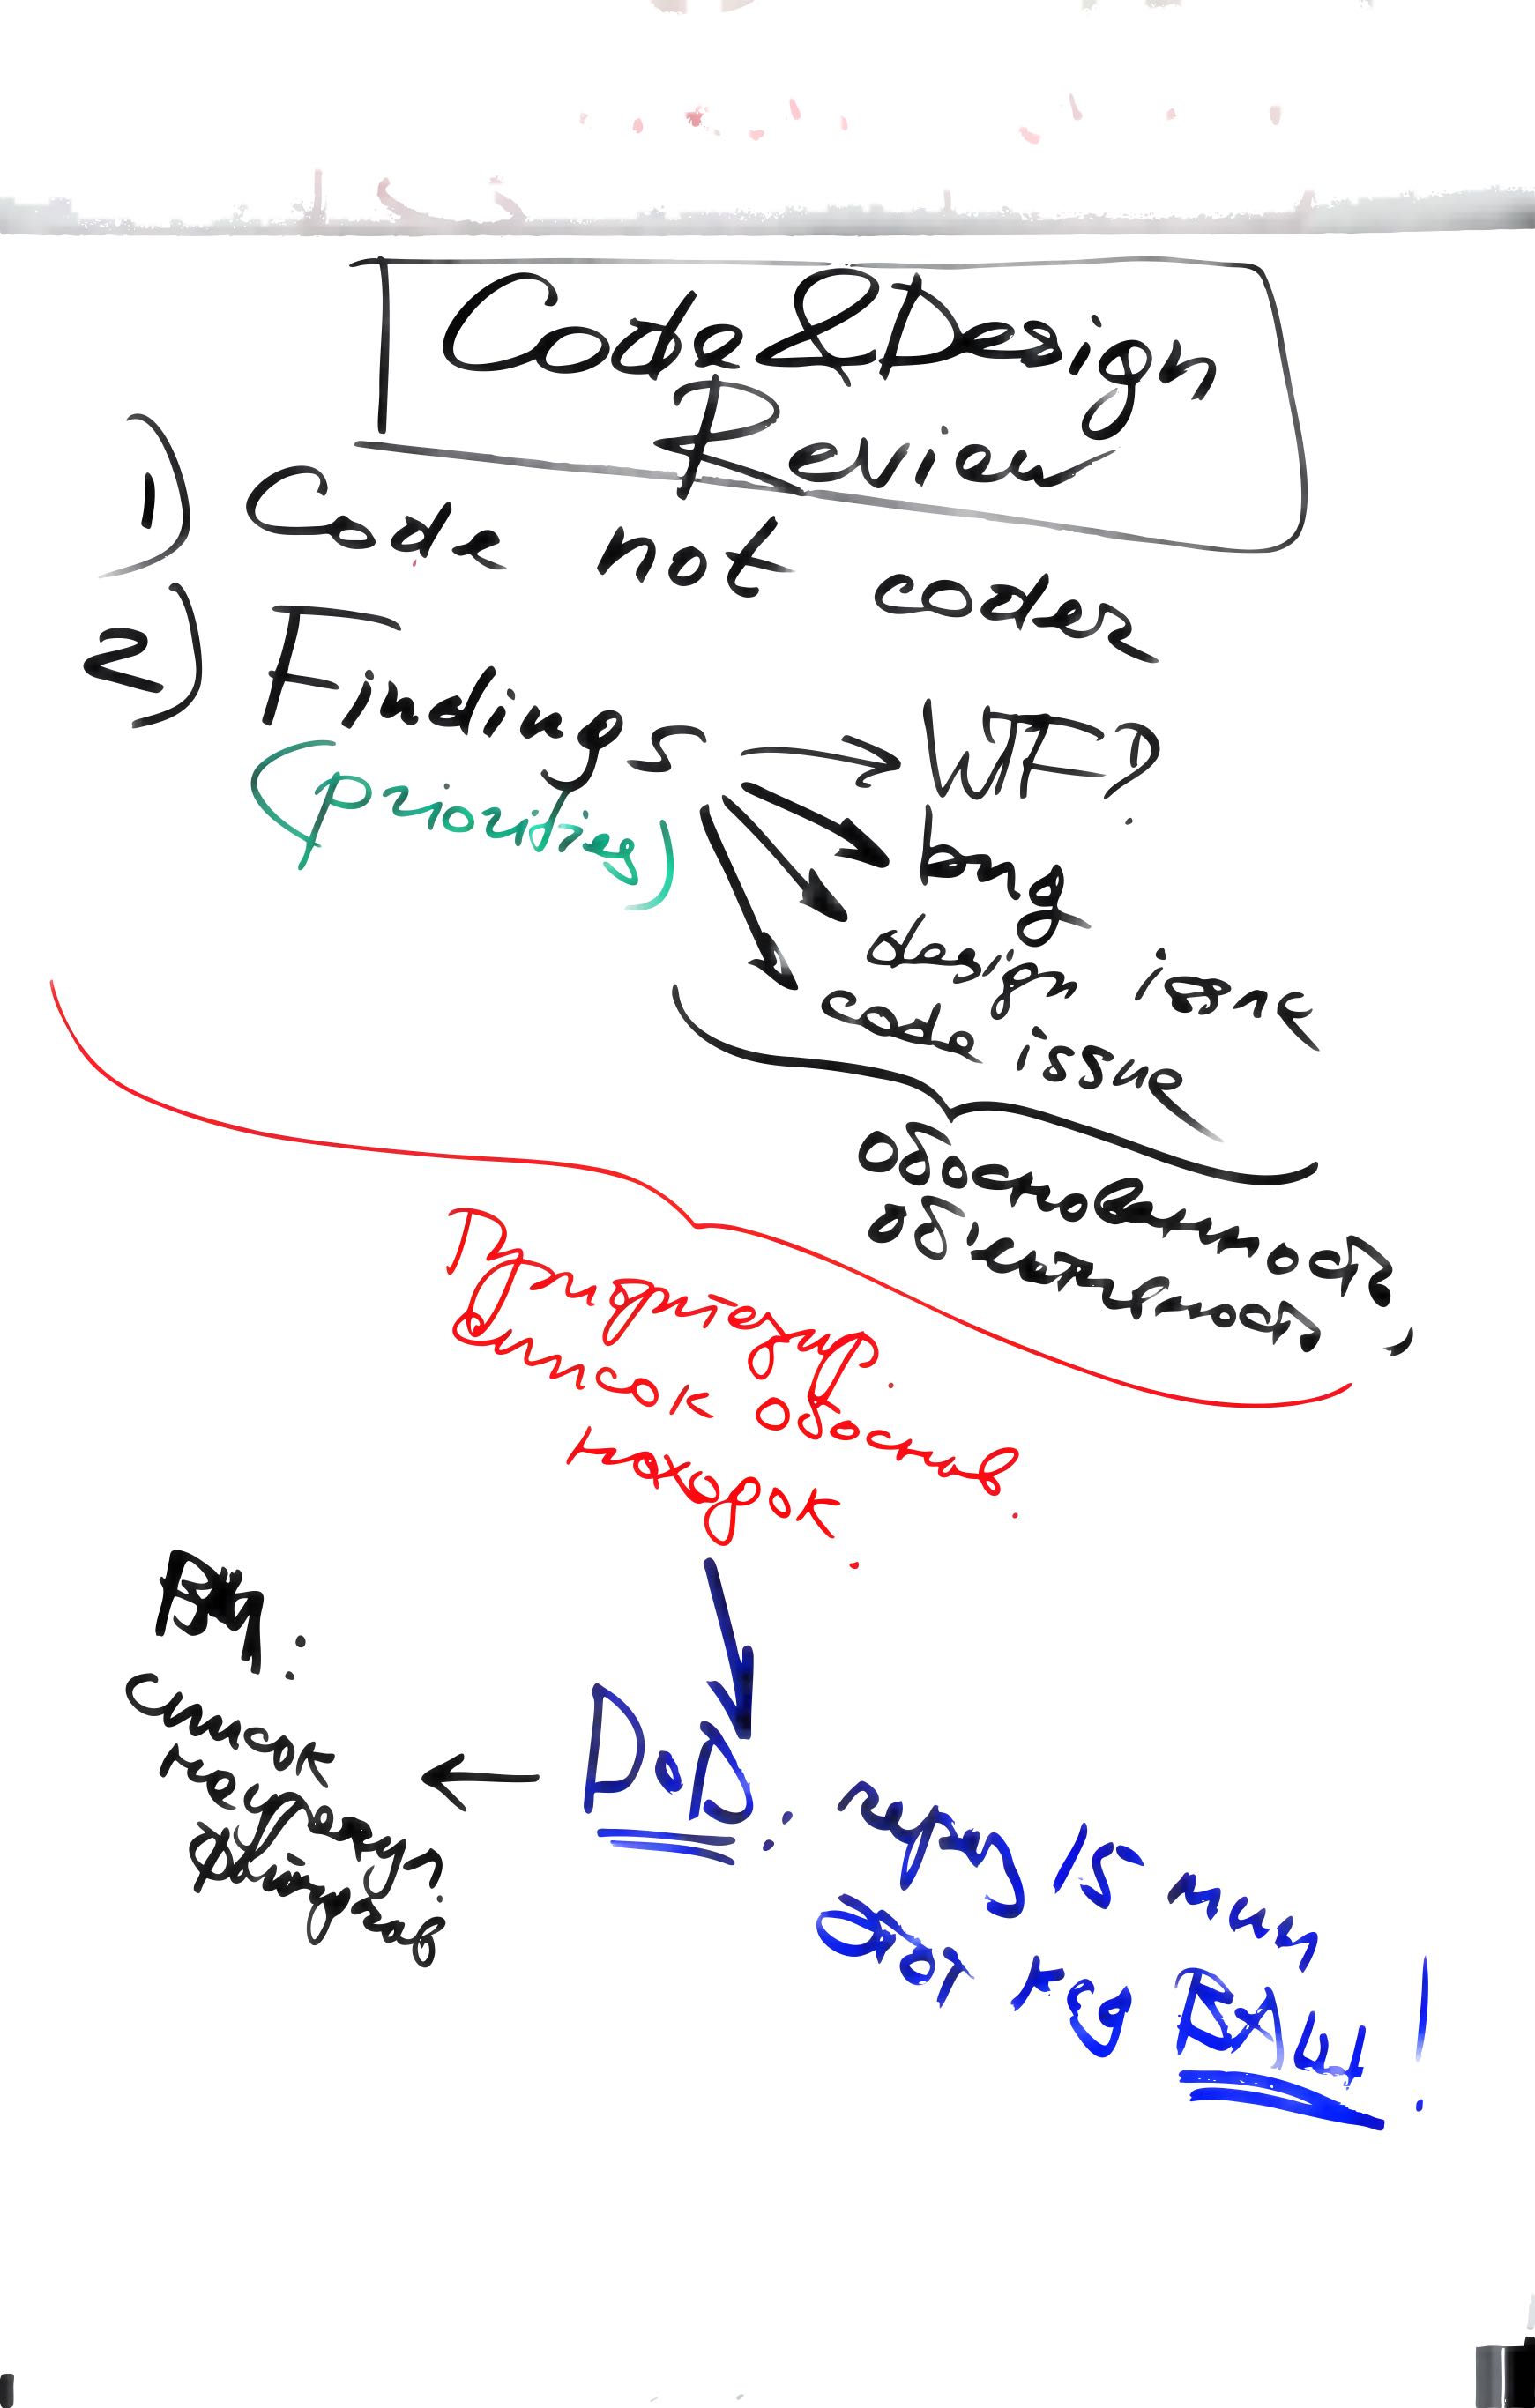 Code & Design
Review
1) Code not coder
2) Findings
(priorities)
WTF?
bug
design issue
code issue
обоснованность,
объективность
Приоритезир.
список обоснов.
находок.
DoD:
через 15 мин
этот код ВАШ!
список